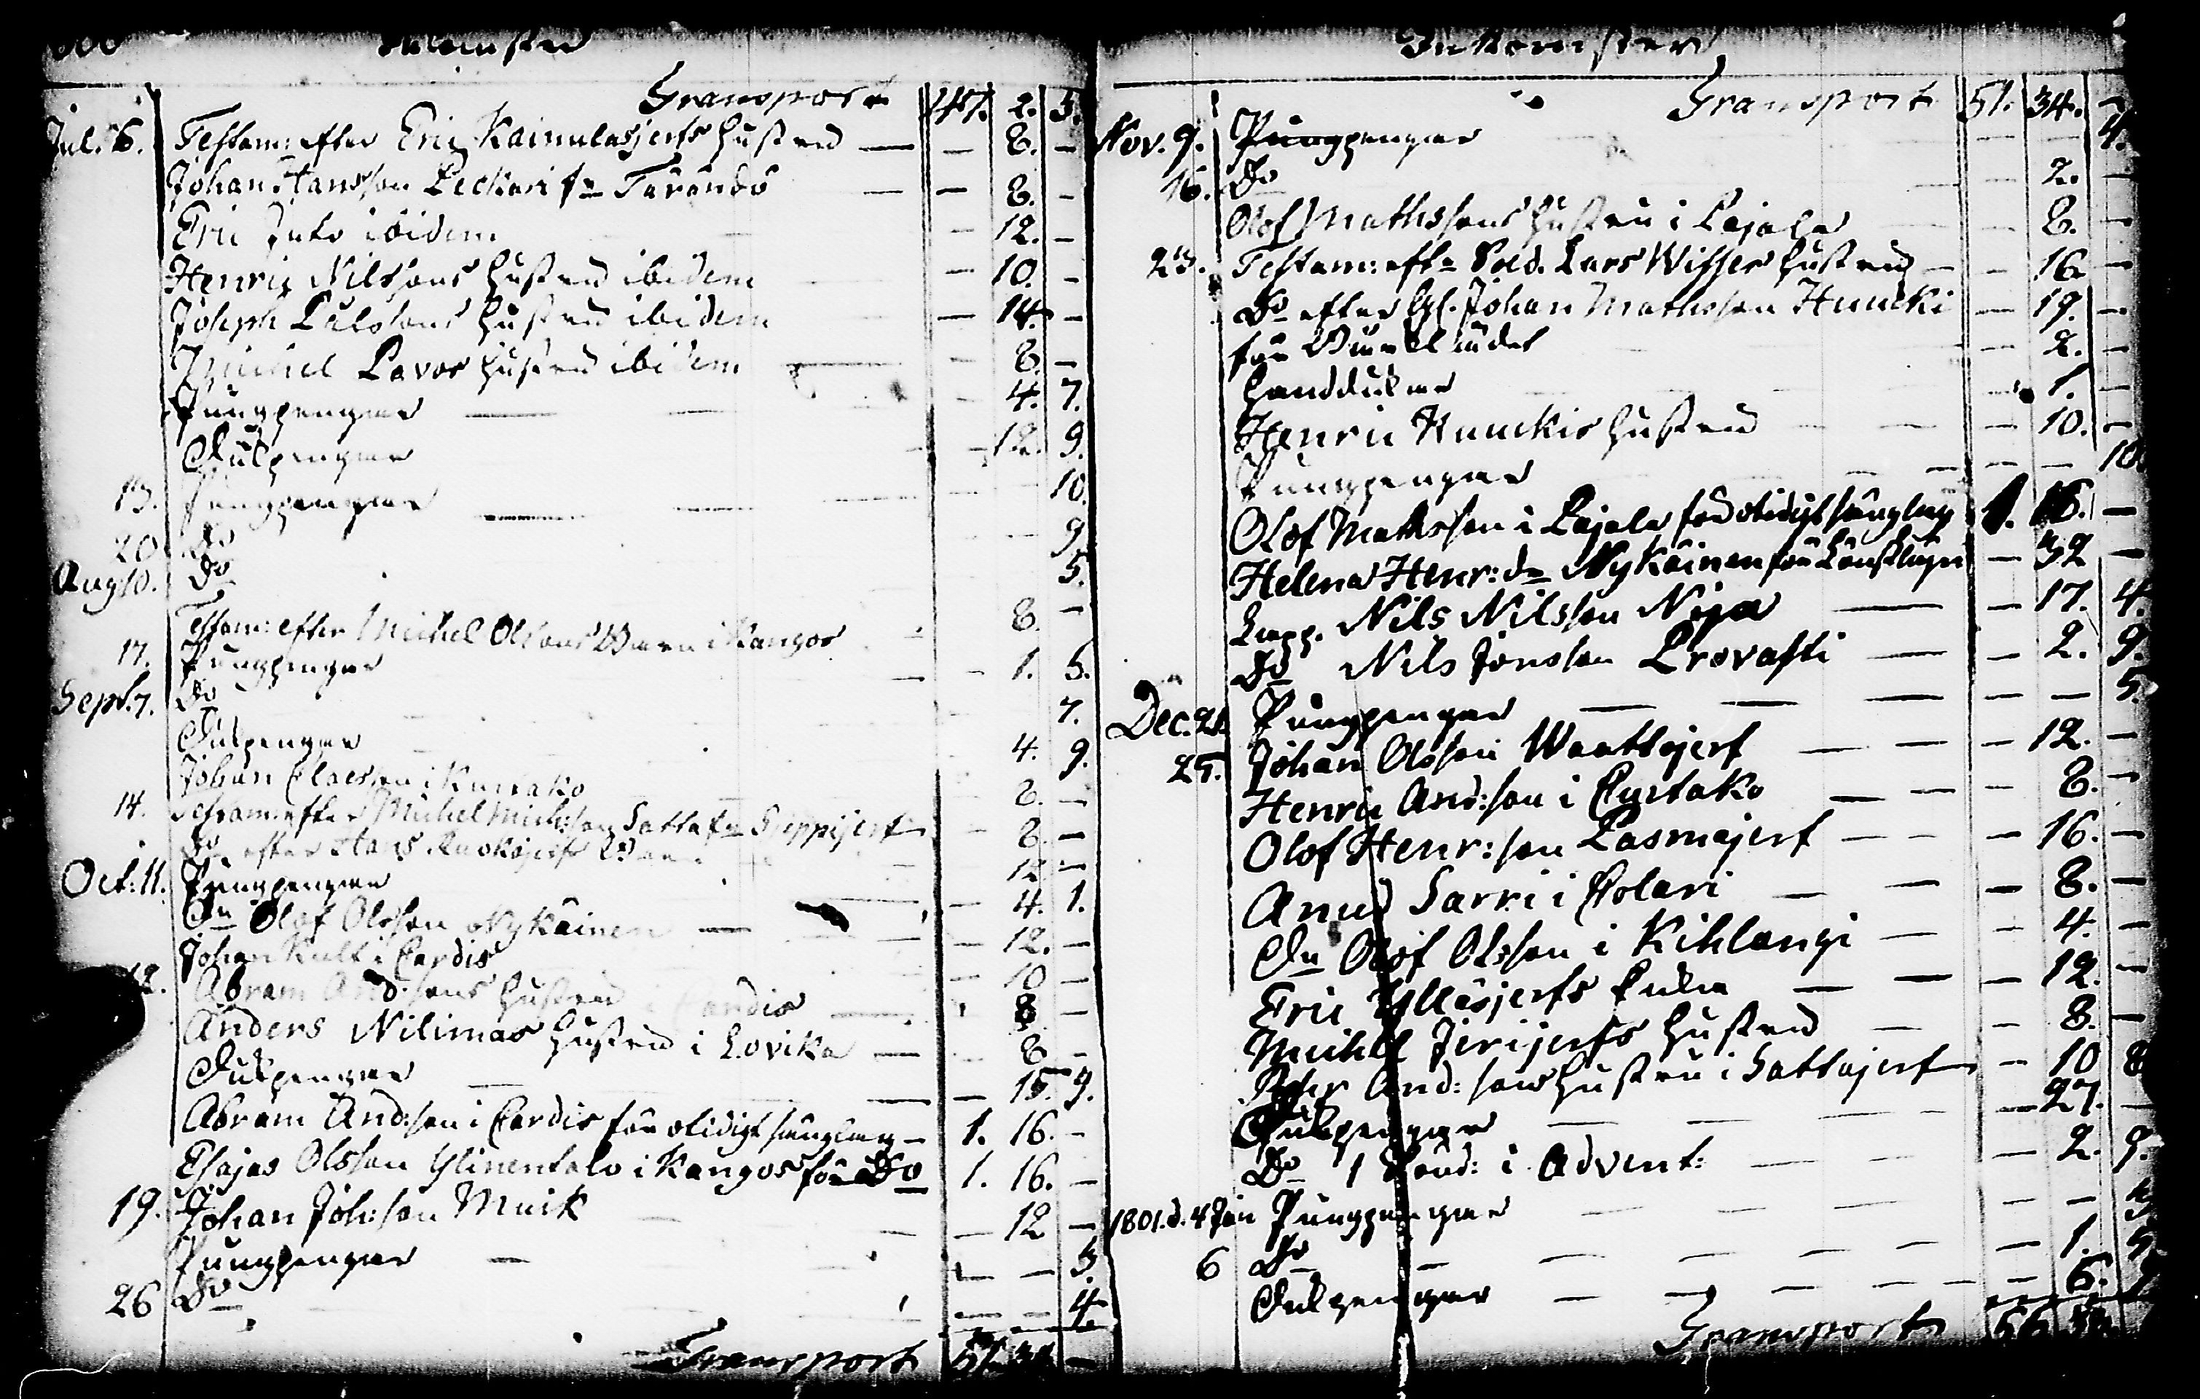 Inkomster
Transport 147. 2. 5.
Jul. 6. Testam: efter Eric Kainulasjerfs hustru — — 8. —
Johan Hansson Leckari fr Tärändö — 8. —
Eric ibidem — 12. —
Henric Nilssons hustru ibidem — 10. —
Joseph Pålssons hustru ibidem — 14. —
Michel Lavos hustru ibidem — 8. —
Pungpengar — 4. 7.
Julpengar — 12. 9.
13. Pungpengar — 10.
20. Do — 9.
Aug 10. Do 5.
Testam: efter Michel Olssons Barn i Kangos 8. —
17. Pungpengar 1. 5.
Sept. 7. Do 7.
Julpengar 4. 9.
Johan Claesson i 8. —
14. Testam: efter Michel Michelsson Satta fr 8. —
Do efter Hans 12 —
Oct: 11. Pungpengar — 4. 1.
Olof Olsson Nykäinen — — 12. —
Johan i Pardis — 10 —
12. Abram And:sons hustru i Pardis — 8 —
Anders Nilimas hustru i Lovika — 8 —
Julpengar — 15. 9.
Abram And:son i Pardis för otidigt sänglag — 1. 16. —
Esajas Olsson Ylinentalo i Kangos för Do 1. 16. —
19. Johan Joh:son Muik — 12 —
Pungpengar — — 3.
26 Do — — 4
Transport 51. 34 —
Inkomster
Transport 51. 34. —
Nov. 9. Pungpengar — — 4.
16. Do — 2. —
Olof Mathssons hustru i Pajala — 8. —
23. Testam: eftr Sold. Lars Wissers hustru — — 16 —
Do efter Gl. Johan Mathsson Huucki — 19. —
för 2. —
handdukar 1. —
Henric Huuckis hustru — 10. —
Pungpengar — — 10.
Olof Mathsson i Pajala för otidigt sänglag 1. 16. —
Helena Henr: dr Nykäinen för — 32 —
Lapp. Nils Nilsson Nija — — 17. 4.
Do Nils Jonsson Provasti — — 2. 9.
Dec. 21. Pungpengar — — — — 5.
25. Johan Olsson Waattojerf — — — 12. —
Henric And:son i — — — 8. —
Olof Henr:son Pasmajerf — — — 16. —
Anud Sarri i Kolari — — 8. —
Olof Olsson i Kihlangi — — 4. —
Eric Ylläsjerfs — — — 12. —
Michel Jerijerfs hustru — — 8. —
Peter And:sons hustru i Sattajerf — 10 8
Julpengar — — — — 27. —
Do 1 Sönd: i Advent: — — — 2. 9.
1801. d. 4 Jan Pungpengar — — — —
6 Do — — — — — 1. 5
Julpengar — — — — — 6.
Transport 56